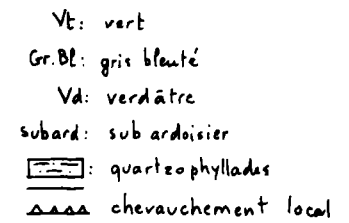 Vt: vert
Gr.Bl: gris bleuté
Vd: verdâtre
subard: sub ardoisier
: quartzophyllades
chevauchement local